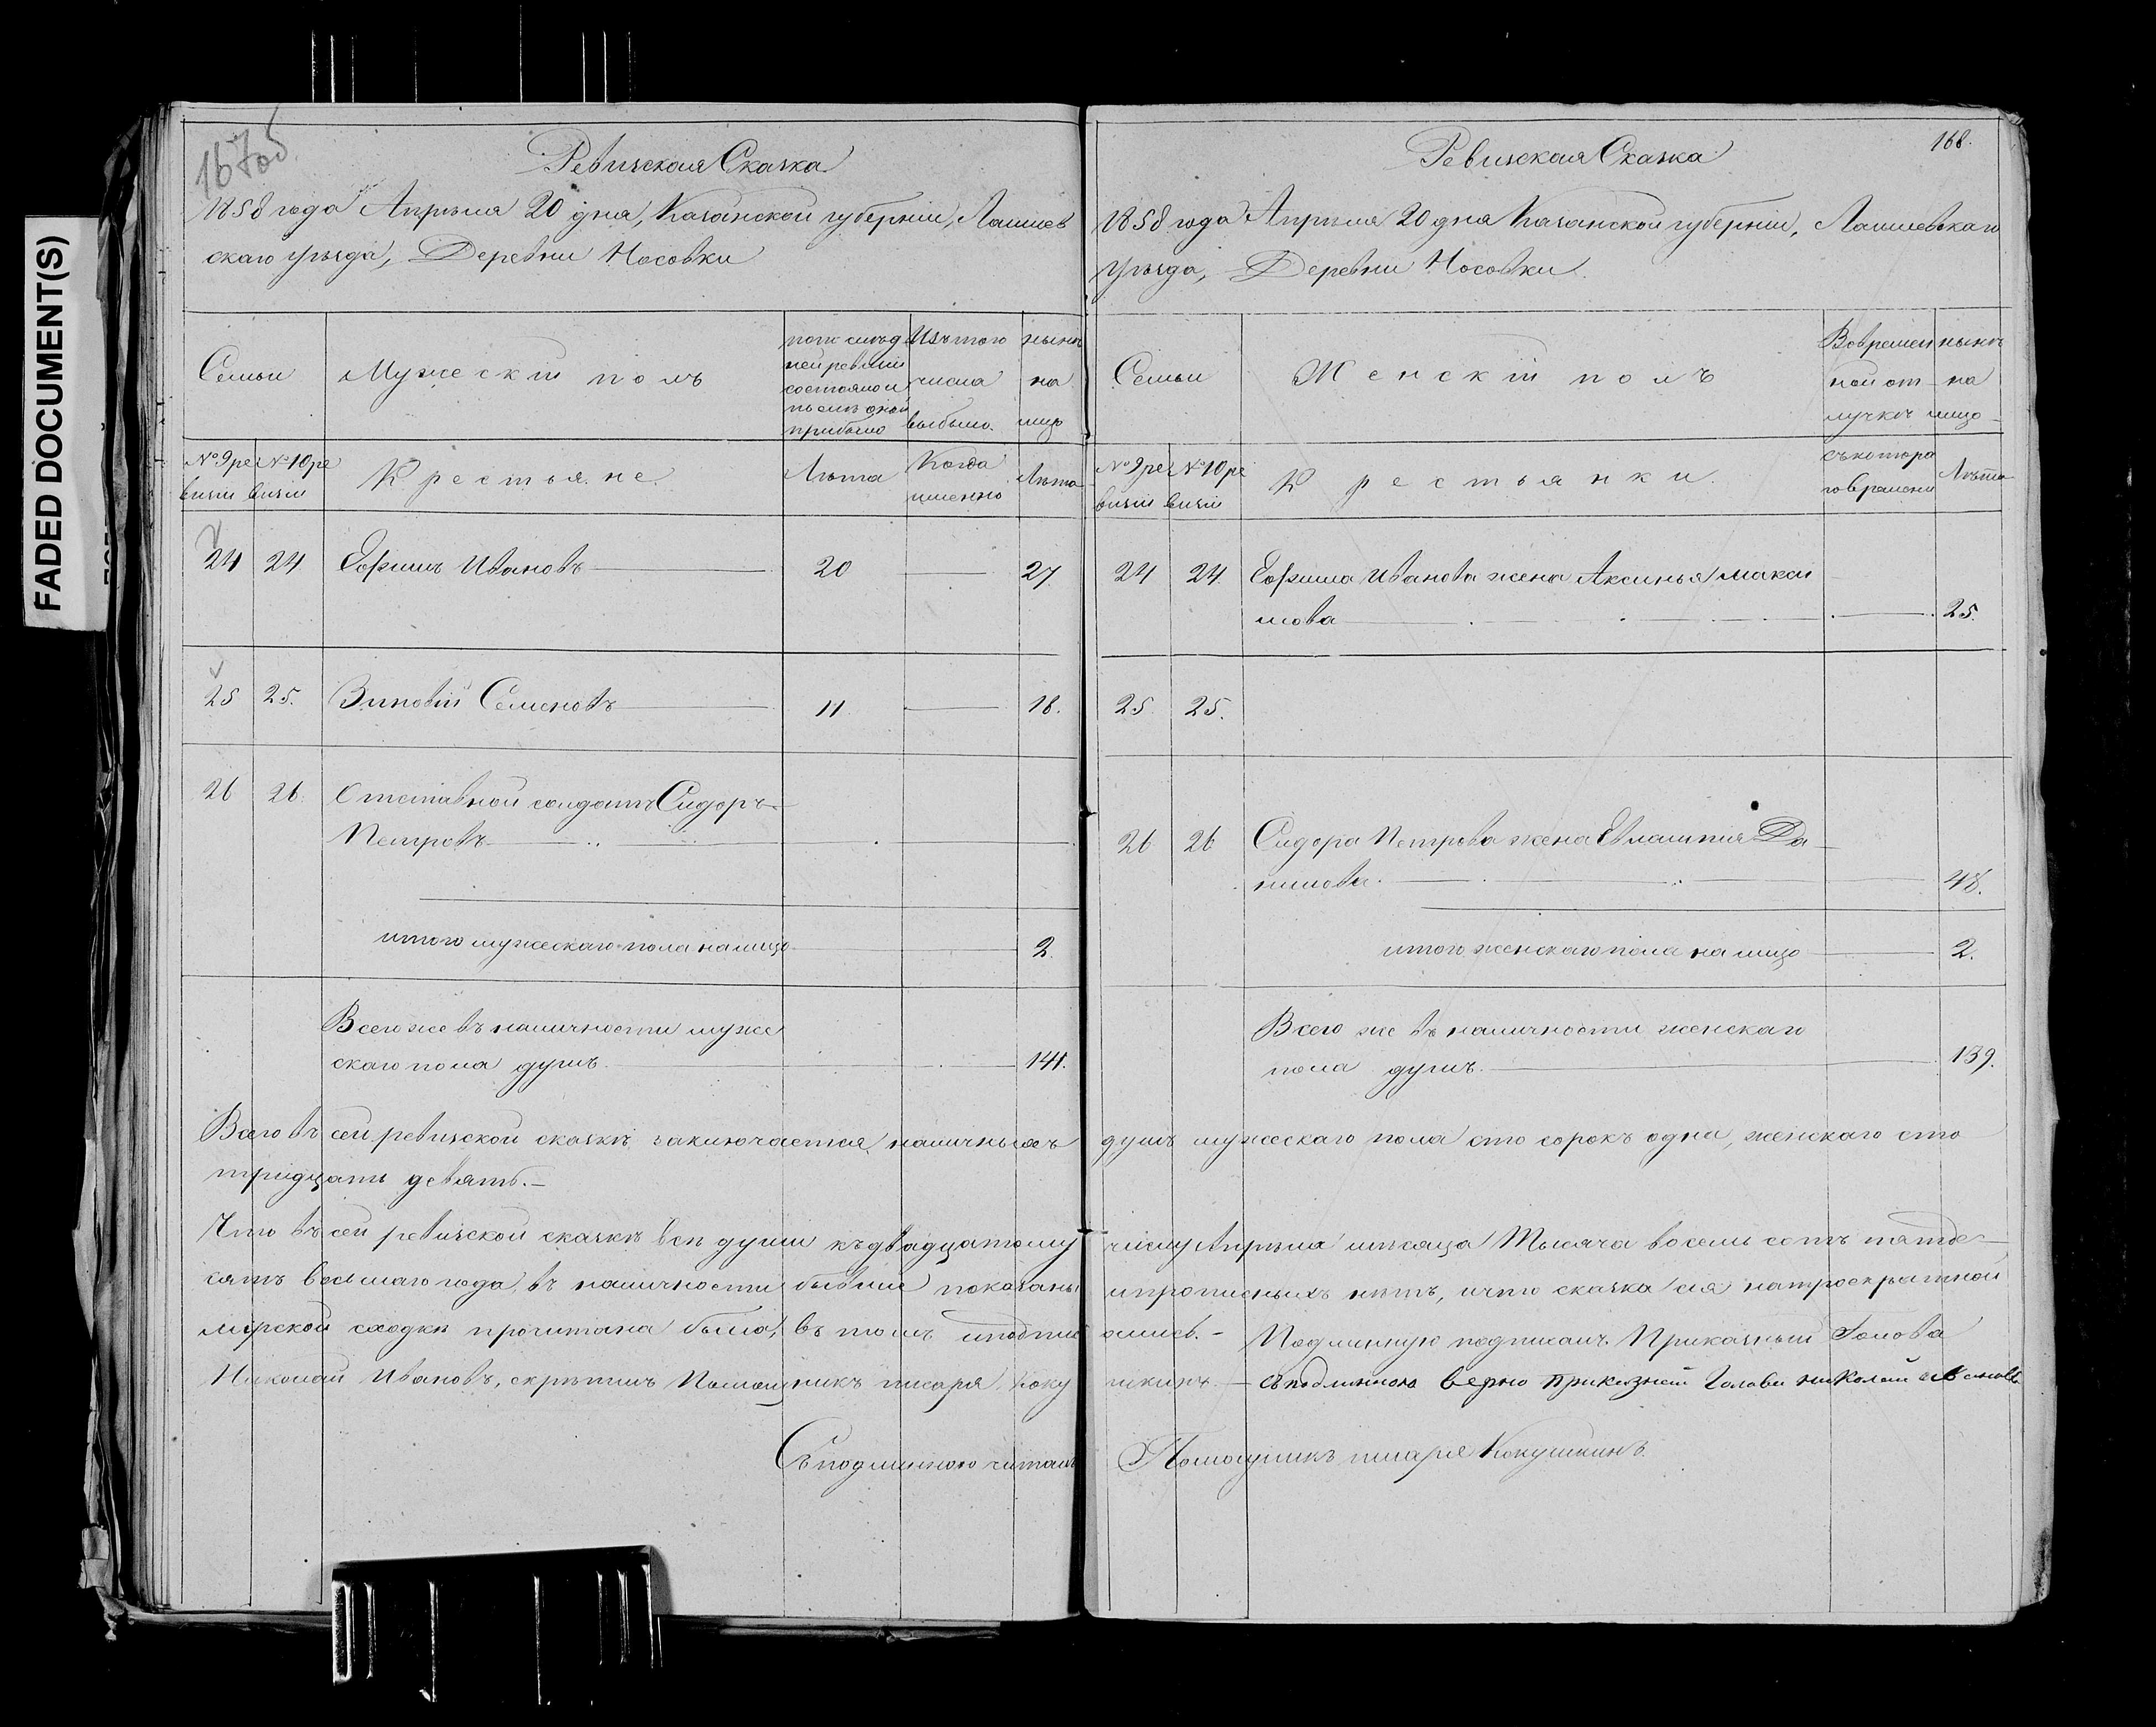 FADED DOCUMENT(S)
167об.
Ревизская Сказка
1858 года Апрѣля 20 дня, Казанской губерніи, Лаишев
скаго уѣзда, Деревни Носовки
Семьи
Мужескій полъ
по послѣд
ней ревизіи
состояло и
послѣ оной
прибыло
Изъ того
числа
выбыло.
нынѣ
на
лицо
№ 9 ре
визіи
№ 10 ре
визіи
Крестьяне
Лѣта
Когда
именно
Лѣта
24 24 Ефимъ Ивановъ 20 27.
25 25. Зиновій Семеновъ 11. 18.
26 26. Отставной солдатъ Сидоръ
Петровъ
итого мужескаго пола налицо 2.
Всего же въ наличности муже
скаго пола душъ 141.
168.
Ревизская Сказка
1858 года Апрѣля 20 дня Казанской губерніи, Лаишевскаго
уѣзда, Деревни Носовки.
Семьи
Женскій полъ
Во времен
ной от
лучкѣ
нынѣ
на
лицо
№ 9 ре
визіи
№ 10 ре
визіи
Крестьянки.
съ котора
го времени
Лѣта
24 24. Ефима Иванова жена Аксинья Макси
мова 25.
25. 25.
26 26 Сидора Петрова жена Евлампія Да
нилова. 48.
итого женскаго пола на лицо 2.
Всего же въ наличности женскаго
пола душъ. 139.
Всего въ сей ревизской сказкѣ заключается наличныхъ душъ мужескаго пола сто сорокъ одна, женскаго сто
тридцать девять.—
Что въ сей ревизской сказкѣ всѣ души къ двадцатому числу Апрѣля мѣсяца Тысяча восемь сотъ пятьде
сятъ восьмаго года, въ наличности бывшіе показаны и прописныхъ нѣтъ, и что сказка сія на троекратной
мирской сходкѣ прочитана была, въ томъ и подпис ались.— Подлинную подписалъ Приказный Голова
Николай Ивановъ, скрѣпилъ Помощникъ писаря Коку шкинъ.— съ подлинною верно приказной Голова николай ивановъ
Съ подлинною читалъ Помощникъ писаря Кокушкинъ.